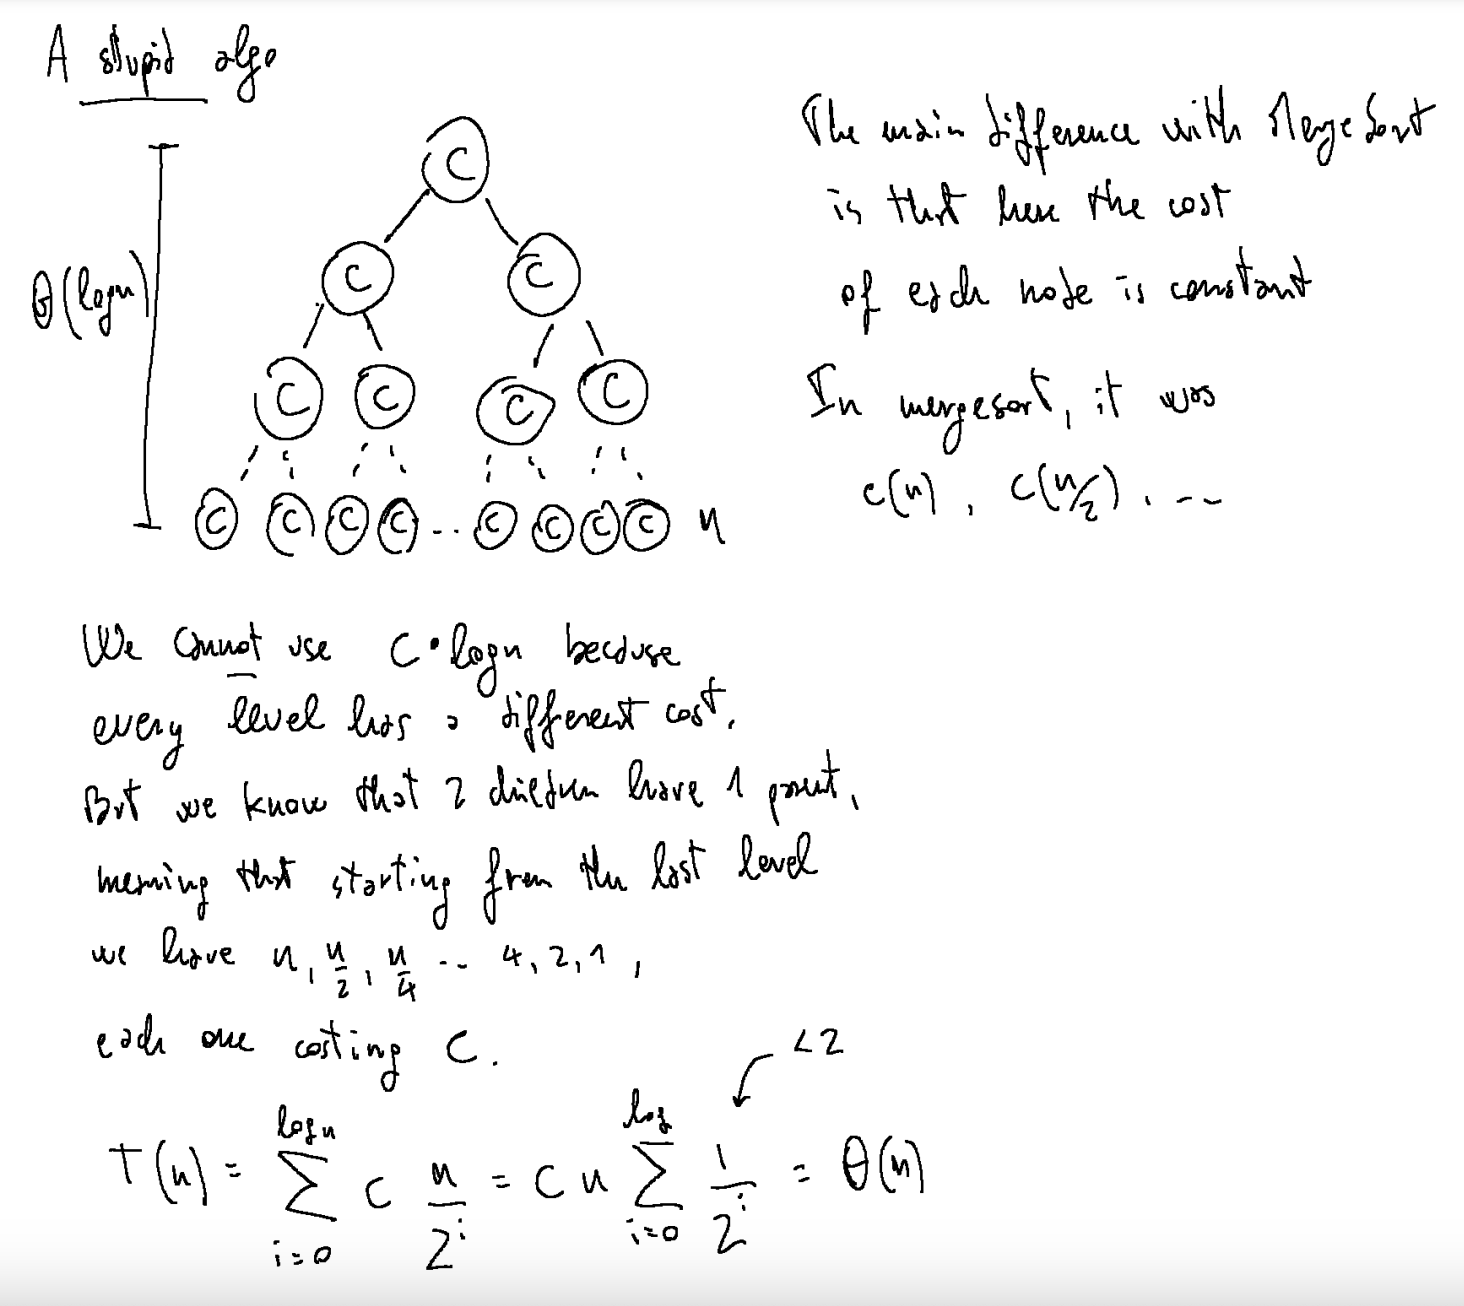 A stupid algo
C
C C
Θ(log n)
C C C C
C C C C .. C C C C n
The main difference with MergeSort
is that here the cost
of each node is constant
In mergesort, it was
c(n), c(n/2), --
We cannot use C • log n because
every level has a different cost.
But we know that 2 children have 1 parent,
meaning that starting from the last level
we have n, n/2, n/4 -- 4, 2, 1,
each one costing C.
<2
T(n) = ∑_{i=0}^{log n} C n/2^i = C n ∑_{i=0}^{log} 1/2^i = Θ(n)